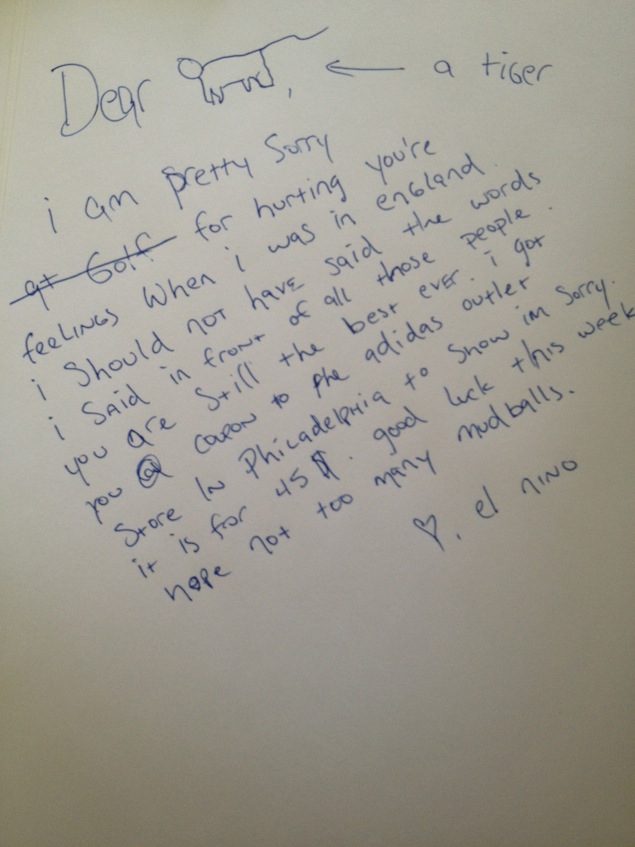 Dear , ← a tiger
i am pretty sorry
at Golf for hurting you're
feelings when i was in england.
i should not have said the words
i said in front of all those people.
you are still the best ever. i got
you a coupon to the adidas outlet
store in Philadelphia to show im sorry.
it is for 45 $. good luck this week
hope not too many mudballs.
♡, el nino